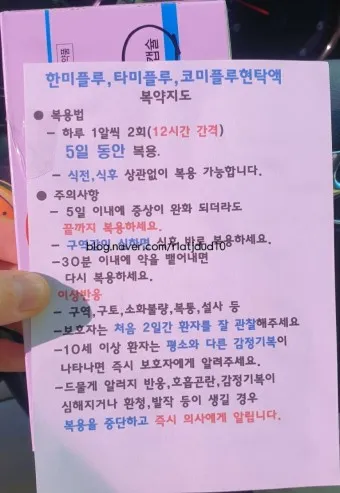 약물
캡슐
한미플루,타미플루,코미플루현탁액
복약지도
● 복용법
– 하루 1알씩 2회(12시간 간격)
5일 동안 복용.
– 식전,식후 상관없이 복용 가능합니다.
● 주의사항
– 5일 이내에 증상이 완화 되더라도
끝까지 복용하세요.
– 구역감이 심하면 식후 바로 복용하세요.
blog.naver.com/
–30분 이내에 약을 뱉어내면
다시 복용하세요.
이상반응
– 구역,구토,소화불량,복통,설사 등
–보호자는 처음 2일간 환자를 잘 관찰해주세요
–10세 이상 환자는 평소와 다른 감정기복이
나타나면 즉시 보호자에게 알려주세요.
–드물게 알러지 반응,호흡곤란,감정기복이
심해지거나 환청,발작 등이 생길 경우
복용을 중단하고 즉시 의사에게 알립니다.